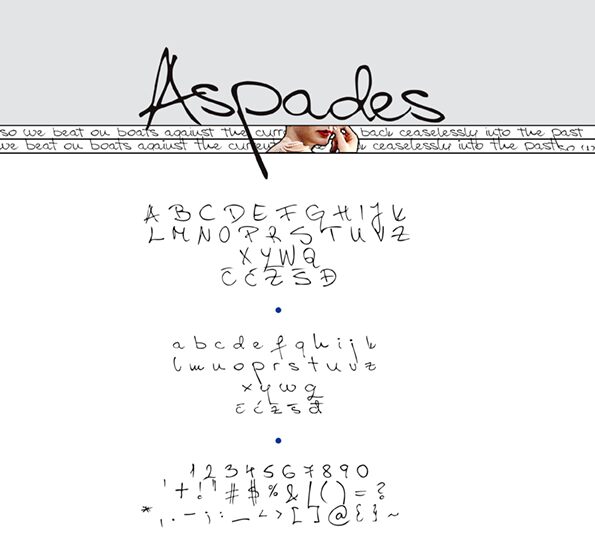 Aspades
so we beat on boats against the curr back ceaselessly into the past
we beat on boats against the curent k ceaselessly into the past so
A B C D E F G H I J K
L M N O P R S T U V Z
X Y W Q
Č Ć Ž Š Đ
a b c d e f g h i j k
l m n o p r s t u v z
x y w q
č ć ž š đ
1 2 3 4 5 6 7 8 9 0
' + ! " # $ % & / ( ) = ?
* , . - ; : _ < > [ ] @ { } ~